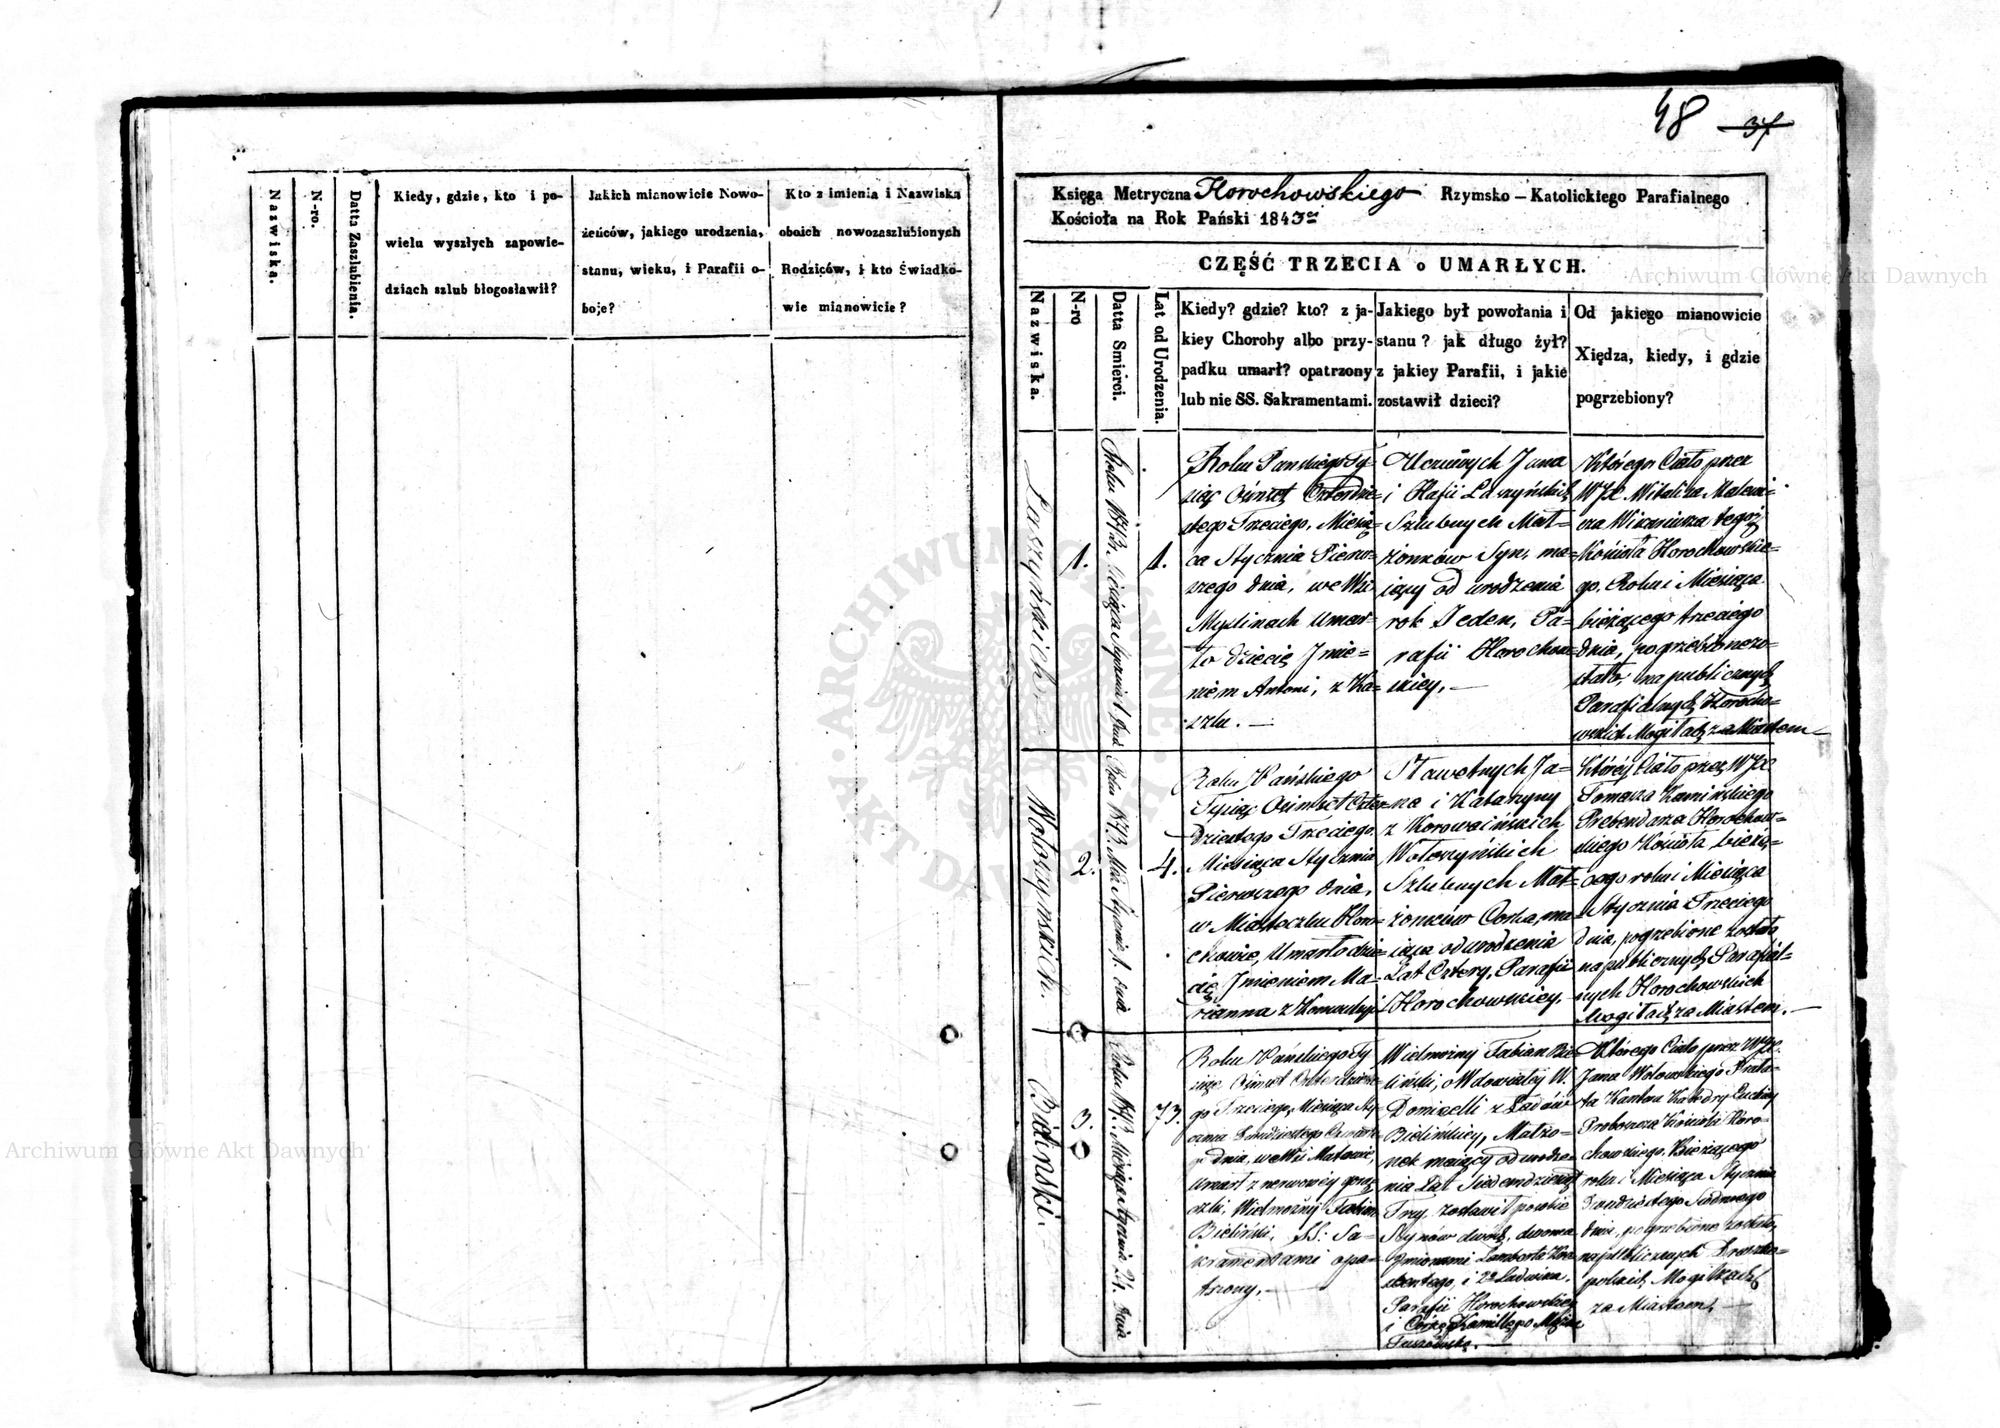 48 37
Nazwiska.
N-ro.
Datta Zaszlubienia.
Kiedy, gdzie, kto i po-
wielu wyszłych zapowie-
dziach szlub błogosławił?
Jakich mianowicie Nowo-
żeńców, jakiego urodzenia,
stanu, wieku, i Parafii o-
boje?
Kto z imienia i Nazwiska
oboich nowozaszlubionych
Rodziców, i kto Świadko-
wie mianowicie?
Księga Metryczna Horochowskiego Rzymsko-Katolickiego Parafialnego
Kościoła na Rok Pański 1843
CZĘŚĆ TRZECIA o UMARŁYCH.
Nazwiska.
N-ro
Datta Smierci.
Lat od Urodzenia.
Kiedy? gdzie? kto? z ja-
kiey Choroby albo przy-
padku umarł? opatrzony
lub nie SS. Sakramentami.
Jakiego był powołania i
stanu? jak długo żył?
z jakiey Parafii, i jakie
zostawił dzieci?
Od jakiego mianowicie
Xiędza, kiedy, i gdzie
pogrzebiony?
Łaszyńskich
1.
Roku 1843. Miesiąca Stycznia 1 dnia
1.
Roku Pańskiego Ty-
siąc Ośmset Czterdzie-
stego Trzeciego, Miesią-
ca Stycznia Pierw-
szego dnia, we Wsi
Myslinach Umar-
ło dziecię Jmie-
niem Antoni, z Ka-
szlu.—
Uczciwych Jana
i Łaszyńskich
Szlubnych Mał-
żonków Syn, ma-
iący od urodzenia
rok Jeden, Pa-
rafii Horochow-
skiey.—
Którego Ciało przez
WJX Witalisa
Wikariusza tegoż
Kościoła Horochowskie-
go, Roku i Miesiąca
bieżącego trzeciego
dnia, pogrzebione zo-
stało, na publicznych
Parafialnych Horocho-
wskich Mogiłach za Miastem—
Wołoszyńskich.
2.
Roku 1843. Stycznia 1. dnia
4.
Roku Pańskiego
Tysiąc Ośmset Czter-
dziestego Trzeciego
Miesiąca Stycznia
Pierwszego dnia,
w Miasteczku Horo-
chowie, Umarło dzie-
cię Jmieniem Ma-
rianna z Konwulsyi
Sławetnych Ja-
na i Katarzyny
z
Wołoszyńskich
Szlubnych Mał-
żonków Corka, ma-
iąca od urodzenia
Lat Cztery, Parafii
Horochowskiey.—
Którey Ciało przez WJX
Tomasza Kamińskiego
Prebendarza Horochow-
skiego Kościoła, bieżą-
cego roku i Miesiąca
Stycznia Trzeciego
dnia, pogrzebione zostało
na publicznych Parafial-
nych Horochowskich
Mogiłach za Miastem.—
Bieliński.
3.
Roku 1843. Miesiąca Stycznia 24. dnia
73.
Roku Pańskiego Ty-
siąc Ośmset Czterdzieste-
go Trzeciego, Miesiąca Sty-
cznia Dwudziestego Czwarte-
go dnia, we Wsi
Umarł z nerwowey gorą-
czki, Wielmożny Fabian
Bieliński, SS: Sa-
kramentami opa-
trzony.—
Wielmożny Fabian Bie-
liński, Owdowiałey W.
Domicelli z
Bielińskiey, Małżo-
nek maiący od urodze-
nia Lat Siedemdziesiąt
Trzy, zostawił po sobie
Synów dwóch, dwoma
Jmionami Lamberta
i 2 Ludwika.
Parafii Horochowskiey
i Córkę
Którego Ciało przez WJX
Jana Wołowskiego Prała-
ta Kantora Katedry Łuckiey
Proboszcza Kościoła Horo-
chowskiego, bieżącego
roku i Miesiąca Stycznia
Dwudziestego Siódmego
dnia, pogrzebione zostało,
na publicznych
Mogiłach
za Miastem.—
ARCHIWUM GŁÓWNE AKT DAWNYCH
Archiwum Główne Akt Dawnych
Archiwum Główne Akt Dawnych